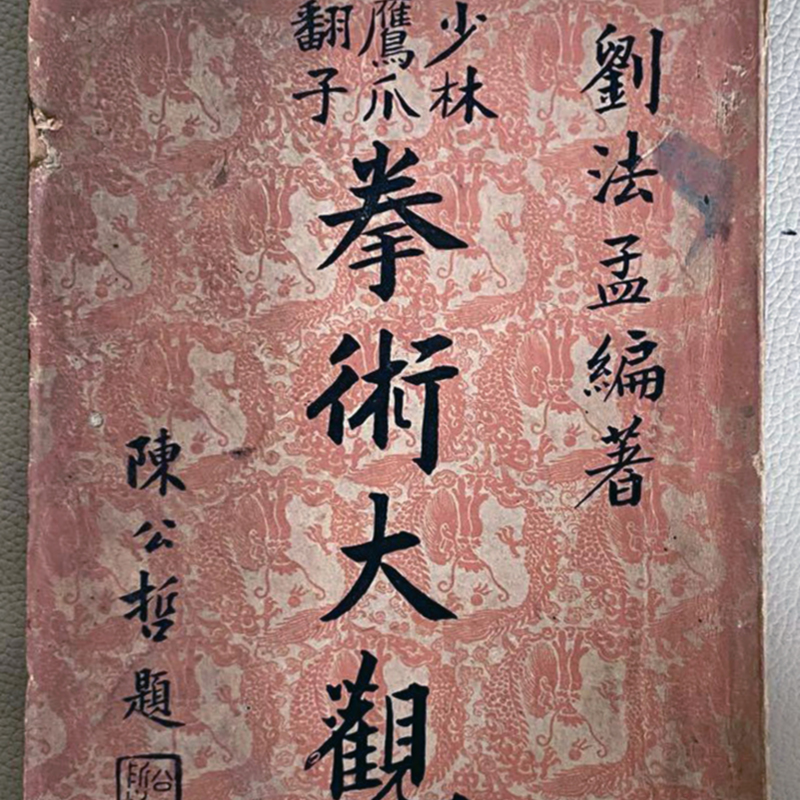 劉法孟編著
少林
鷹爪
翻子
拳術大觀
陳公哲題